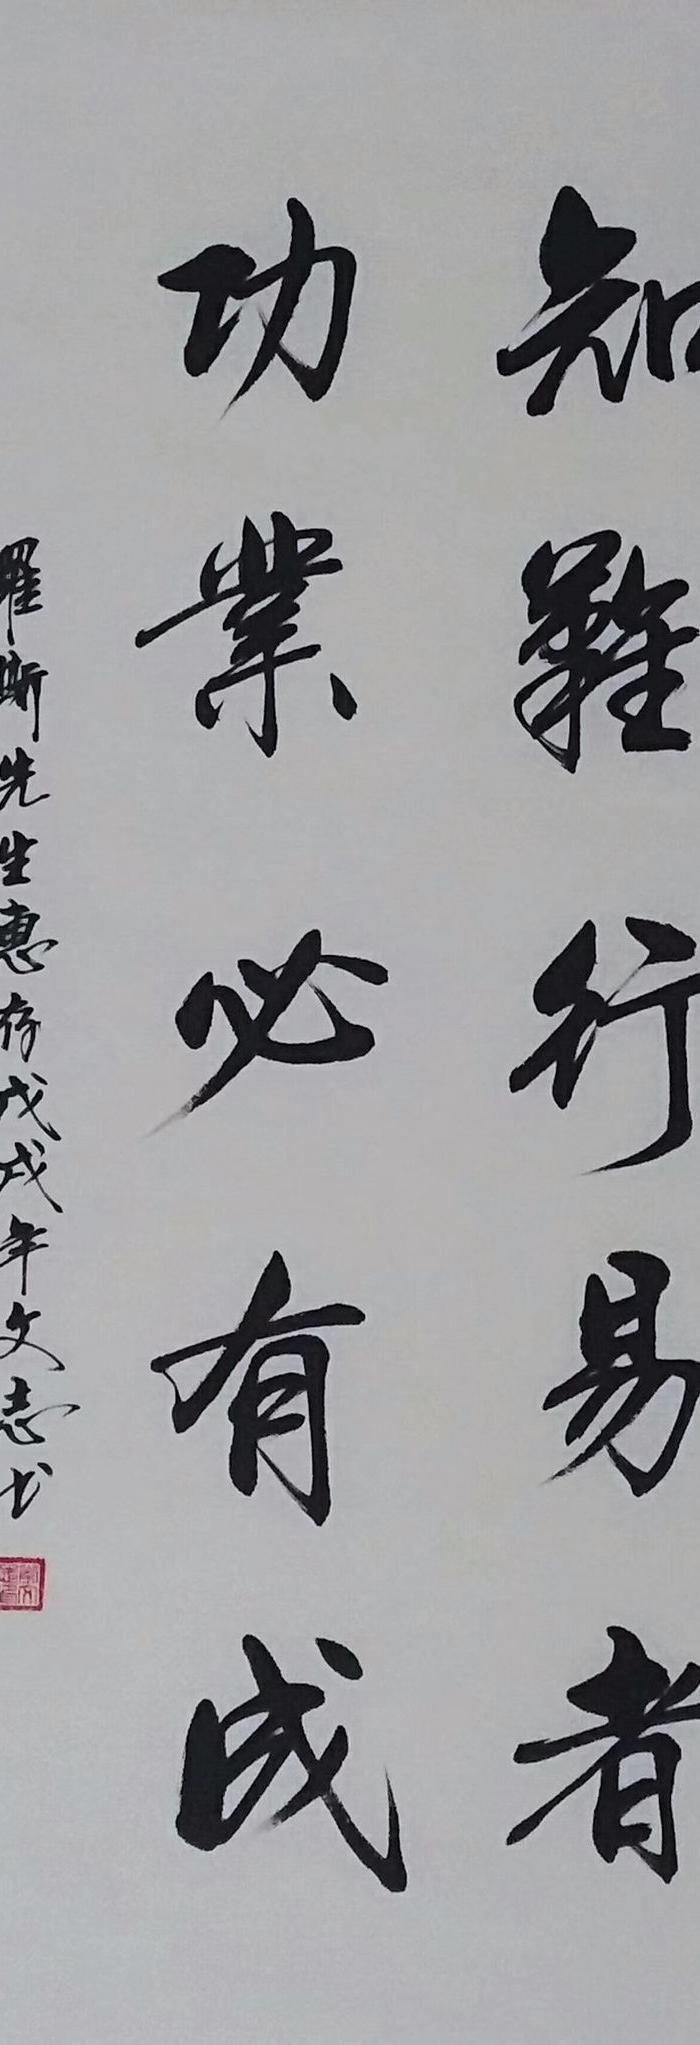 知難行易者
功業必有成
羅斯先生惠存戊戌年文志书